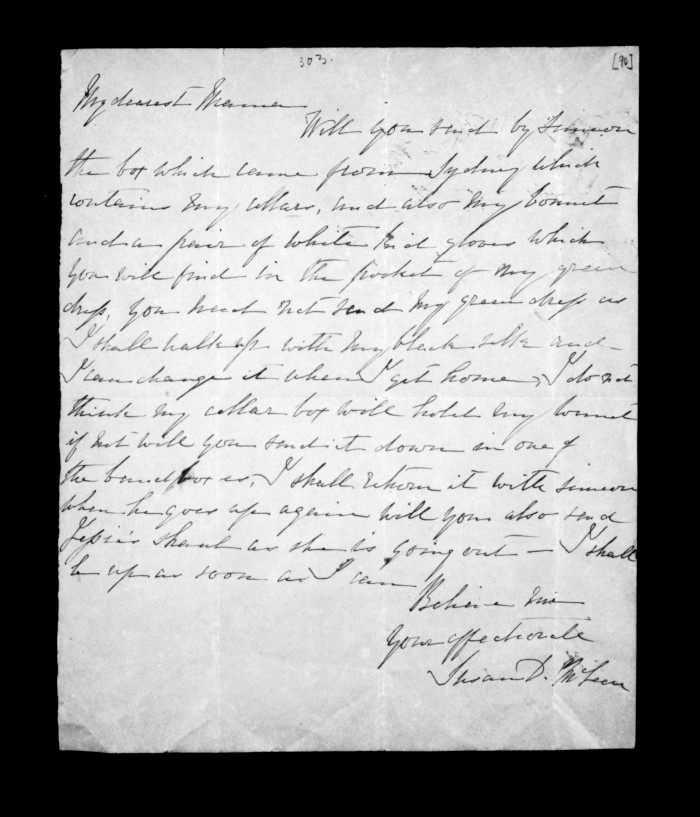 303.
[96]
My dearest Mama
Will you send by Simeon
the box which came from Sydney which
contains my collars, and also my bonnet
and a pair of white kid gloves which
you will find in the pocket of my green
dress, you need not send my green dress as
I shall walk up with my black silk and
I can change it when I get home, I do not
think my collar box will hold my bonnet
if not will you send it down in one of
the band boxes, I shall return it with Simeon
when he goes up again will you also send
Jessie's shawl as she is going out - I shall
be up as soon as I can
Believe me
Your affectionate
Susan D. McLean